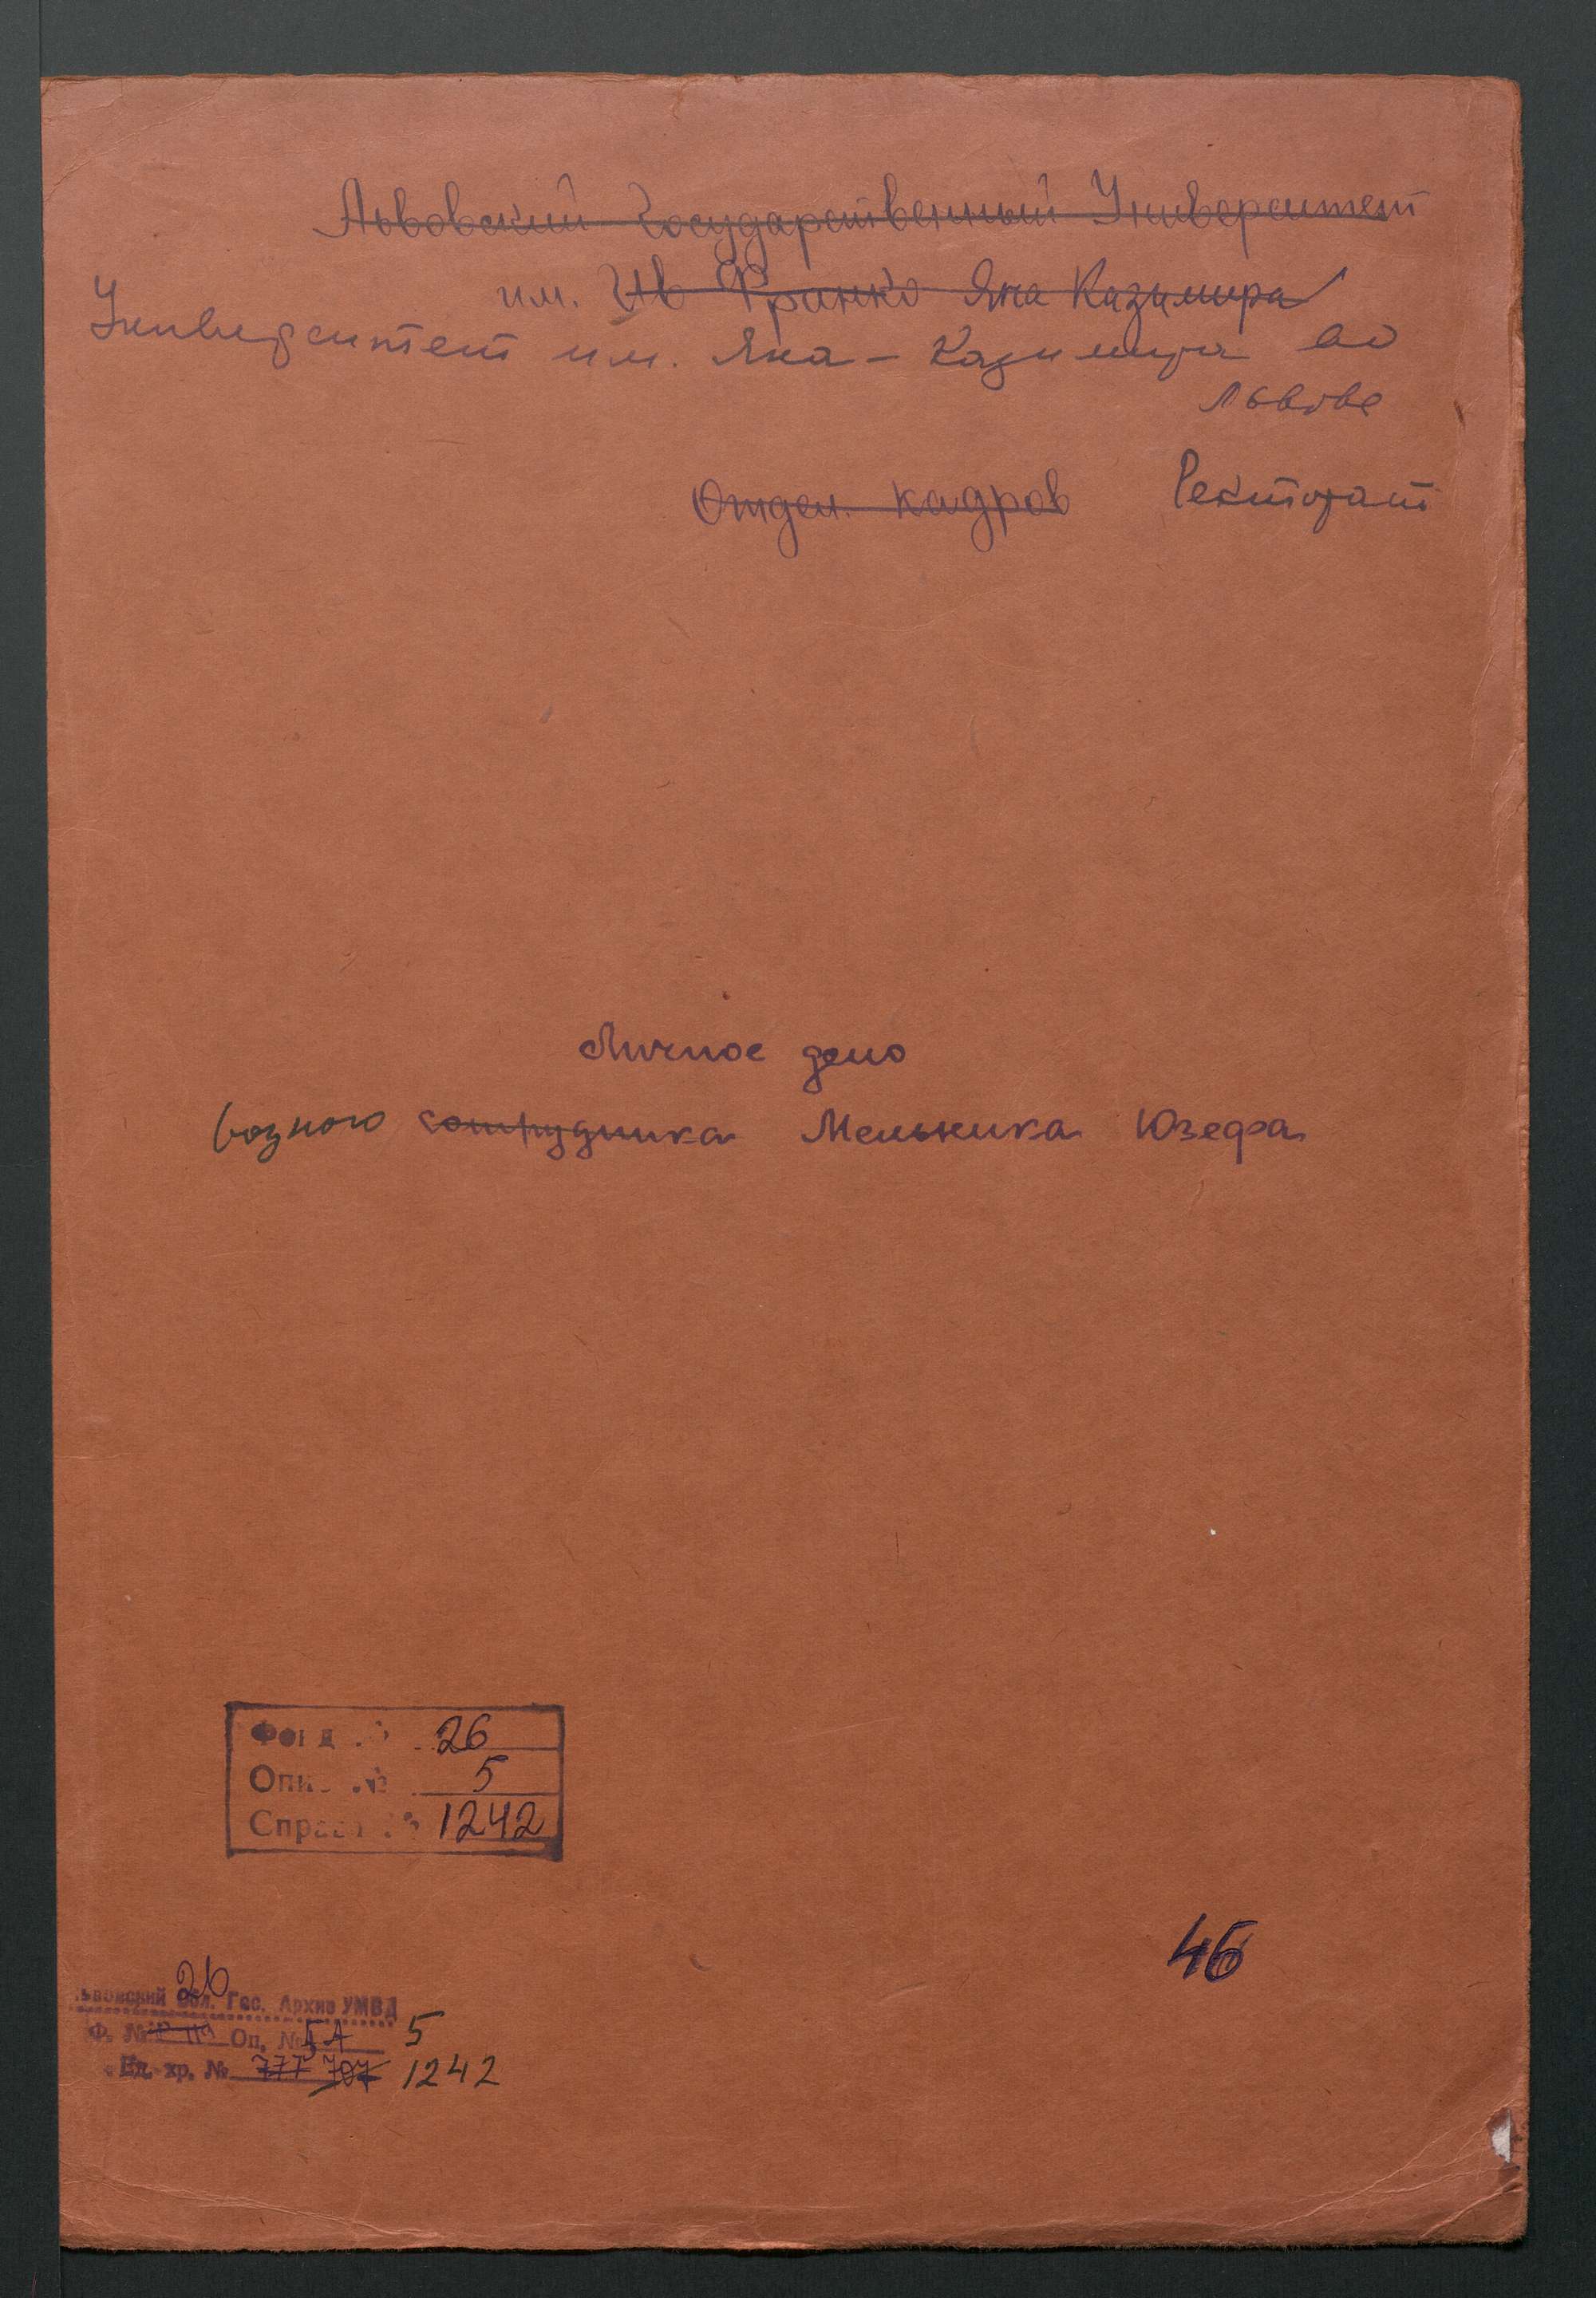 Львовский Государственный Университет
им. Ив Франко Яна Казимира
Университет им. Яна-Казимира во
Львове
Отдел. кадров Ректорат
Личное дело
возного сотрудника Мельника Юзефа
26
5
1242
46
26
Львовский Обл. Гос. Архив УМВД
Ф. № Оп. № 5А 5
Ед. хр. № 777 707 1242